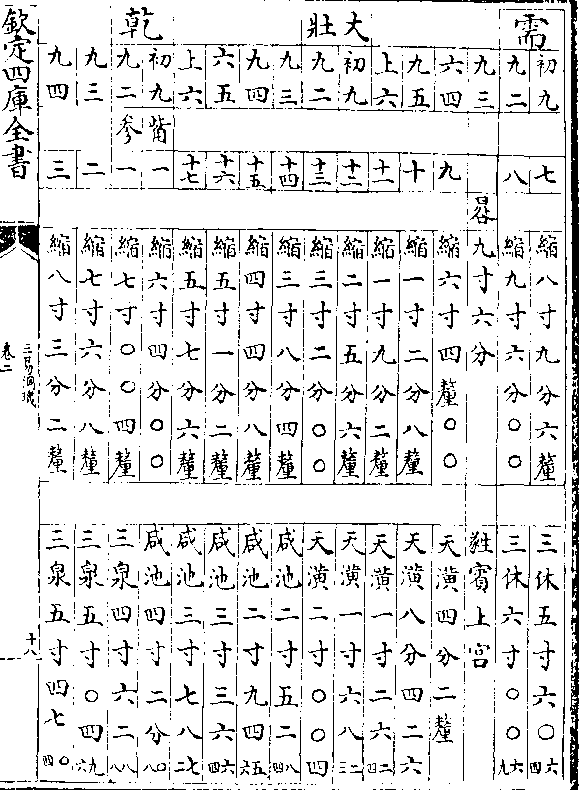 需
初九 七 縮八寸九分六釐 三休五寸六〇六四
九二 八 縮九寸六分〇〇 三休六寸〇〇六九
九三 晷 九寸六分 蕤賓上宮
六四 九 縮六寸四釐〇〇 天潢四分二釐
九五 十 縮一寸二分八釐 天潢八分四二六
上六 十一 縮一寸九分二釐 天潢一寸二六二四
大壯
初九 十二 縮二寸五分六釐 天潢一寸六八二三
九二 十三 縮三寸二分〇〇 天潢二寸〇〇四
九三 十四 縮三寸八分四釐 咸池二寸五二八四
九四 十五 縮四寸四分八釐 咸池二寸九四五六
六五 十六 縮五寸一分二釐 咸池三寸三六六四
上六 十七 縮五寸七分六釐 咸池三寸七八七二
乾
初九 觜 一 縮六寸四分〇〇 咸池四寸二分〇八
九二 參 一 縮七寸〇〇四釐 三泉四寸六二八八
九三 二 縮七寸六分八釐 三泉五寸〇四九六
九四 三 縮八寸三分二釐 三泉五寸四七〇四
欽定四庫全書
三易洞璣
卷二
十八